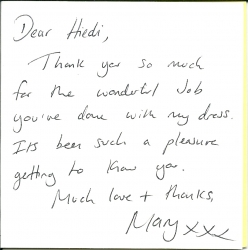 Dear Hiedi,
Thank you so much
for the wonderful job
you've done with my dress.
Its been such a pleasure
getting to know you.
Much love + thanks,
Mary xxx